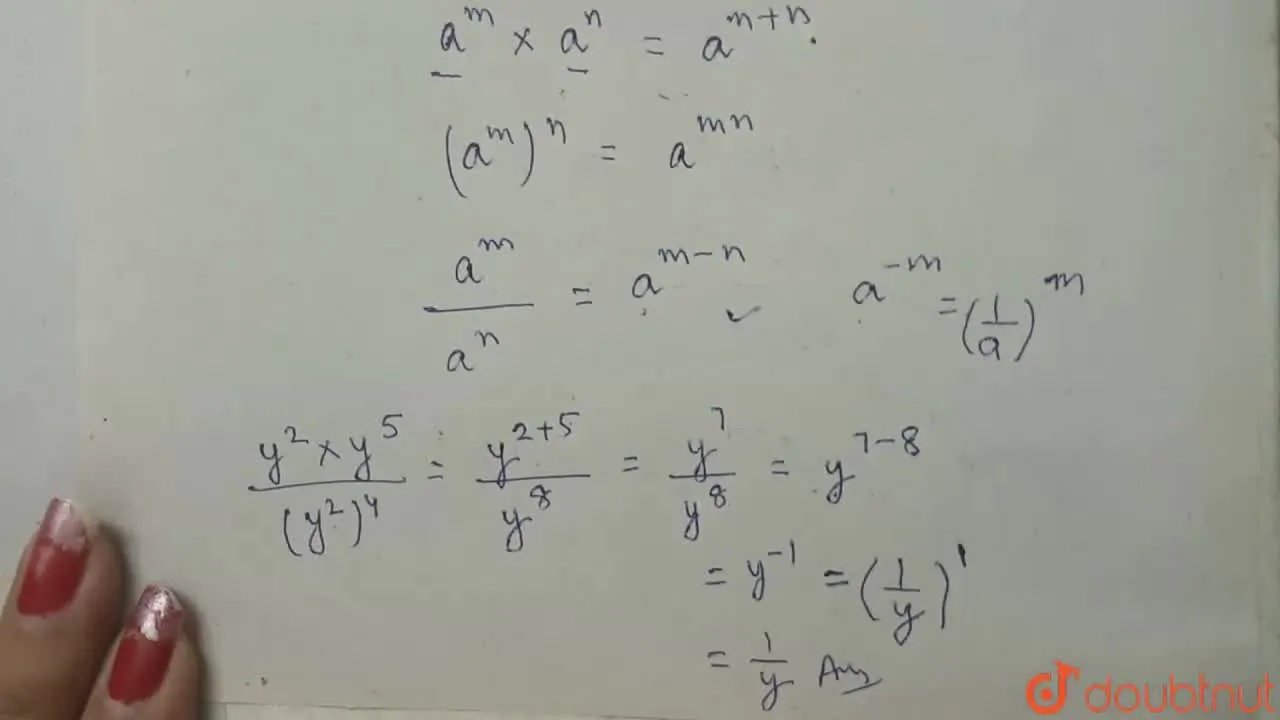 a^m × a^n = a^{m+n}.
(a^m)^n = a^{mn}
\frac{a^m}{a^n} = a^{m-n} ✓ a^{-m} = (\frac{1}{a})^m
\frac{y^2 × y^5}{(y^2)^4} = \frac{y^{2+5}}{y^8} = \frac{y^7}{y^8} = y^{7-8}
= y^{-1} = (\frac{1}{y})^1
= \frac{1}{y} Ans
doubtnut